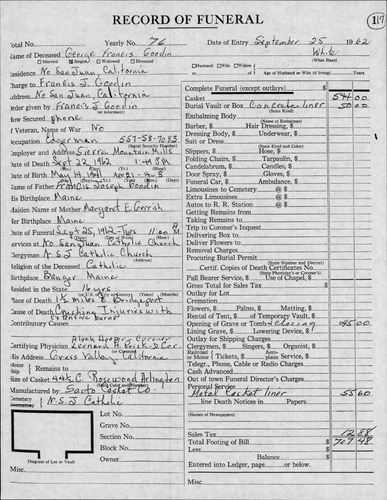 RECORD OF FUNERAL
117
Total No. Yearly No. 76 Date of Entry September 25 1962
Name of Deceased George Francis Goodin White
Married Single Widowed Divorced
Husband Wife Widow
Residence No San Juan, California of Age of Husband or Wife (if living) Years
Charge to Francis J. Goodin Complete Funeral (except outlays) $
Address No San Juan, California Casket 544 00
Order given by Francis J Goodin Burial Vault or Box Concrete liner 50 00
How Secured phone Embalming Body
(Name of Embalmer)
If Veteran, Name of War No Barber, $ Hair Dressing, $
Occupation Edgerman 557-58-7083 Dressing Body, $ Underwear, $
(Social Security Number) Suit or Dress
Employer and Address Sierra Mountain Mills (State Kind and Color)
Slippers, $ Hose, $
Date of Death Sept 22, 1962 Folding Chairs, $ Tarpaulin, $
Candelabrum, $ Candles, $
Date of Birth May 14, 1941 Age 21-4-8 Door Spray, $ Gloves, $
Name of Father Francis Joseph Goodin Funeral Car, $ Ambulance, $
His Birthplace Maine Limousines to Cemetery @ $
Extra Limousines @ $
Maiden Name of Mother Margaret E Gerrish Autos to R. R. Station @ $
Her Birthplace Maine Getting Remains
Taking Remains
Date of Funeral Sept 25, 1962 11:00 AM Trip to Coroner's Inquest
Services at No San Juan Catholic Church Delivering Box
Clergyman N.S.J Catholic Church Deliver Flowers to
(Address) Removal Charges
Religion of the Deceased Catholic Procuring Burial Permit
(State Number and District)
Birthplace Bangor Maine Certif. Copies of Death Certificates No.
(State Physician's or Coroner's)
Resided in the State 16 yrs Pall Bearer Service, $ Use of Chapel, $
Gross Total for Sales Tax $
Place of Death 1½ miles E Bridgeport Outlay for Lot
Cause of Death Crushing Injuries with Cremation
extensive burns Flowers, $ Palms, $ Matting, $
Contributory Causes Rental of Tent, $ of Temporary Vault, $
Opening of Grave or Tomb Clearing 45 00
Lining Grave, $ Lowering Device, $
Certifying Physician Outlay for Shipping Charges
Clergymen, $ Singers, $ Organist, $
His Address Grass Valley, California Railroad or Motor Tickets, $ Aeroplane Service, $
Telegr., Phone, Cable or Radio Charges
Remains Ship to Cash Advanced
Size of Casket Rosewood Arlington Out of town Funeral Director's Charges
Manufactured by Sacto Casket Co Personal Service
Metal Casket liner 55 60
Cemetery N.S.J Catholic line Death Notices in Papers
(Names of Newspapers)
Lot No.
Grave No.
Section No. Sales Tax 12 88
Block No. Total Footing of Bill $ 707 48
Owner Less $
Balance $
Diagram of Lot or Vault Entered into Ledger, page or below.
Misc. Misc.